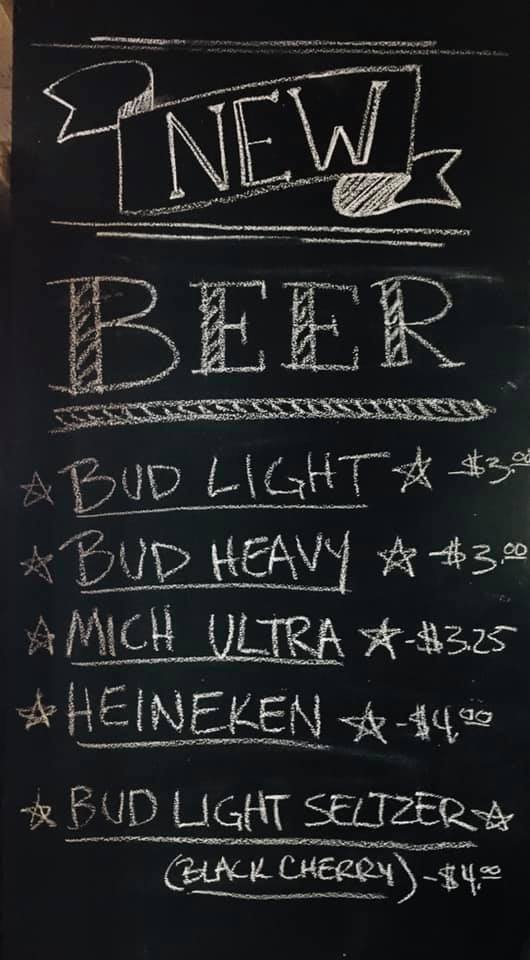 NEW
BEER
☆ BUD LIGHT ☆ -$3.00
☆ BUD HEAVY ☆ -$3.00
☆ MICH ULTRA ☆ -$3.25
☆ HEINEKEN ☆ -$4.00
☆ BUD LIGHT SELTZER ☆
(BLACK CHERRY) -$4.00